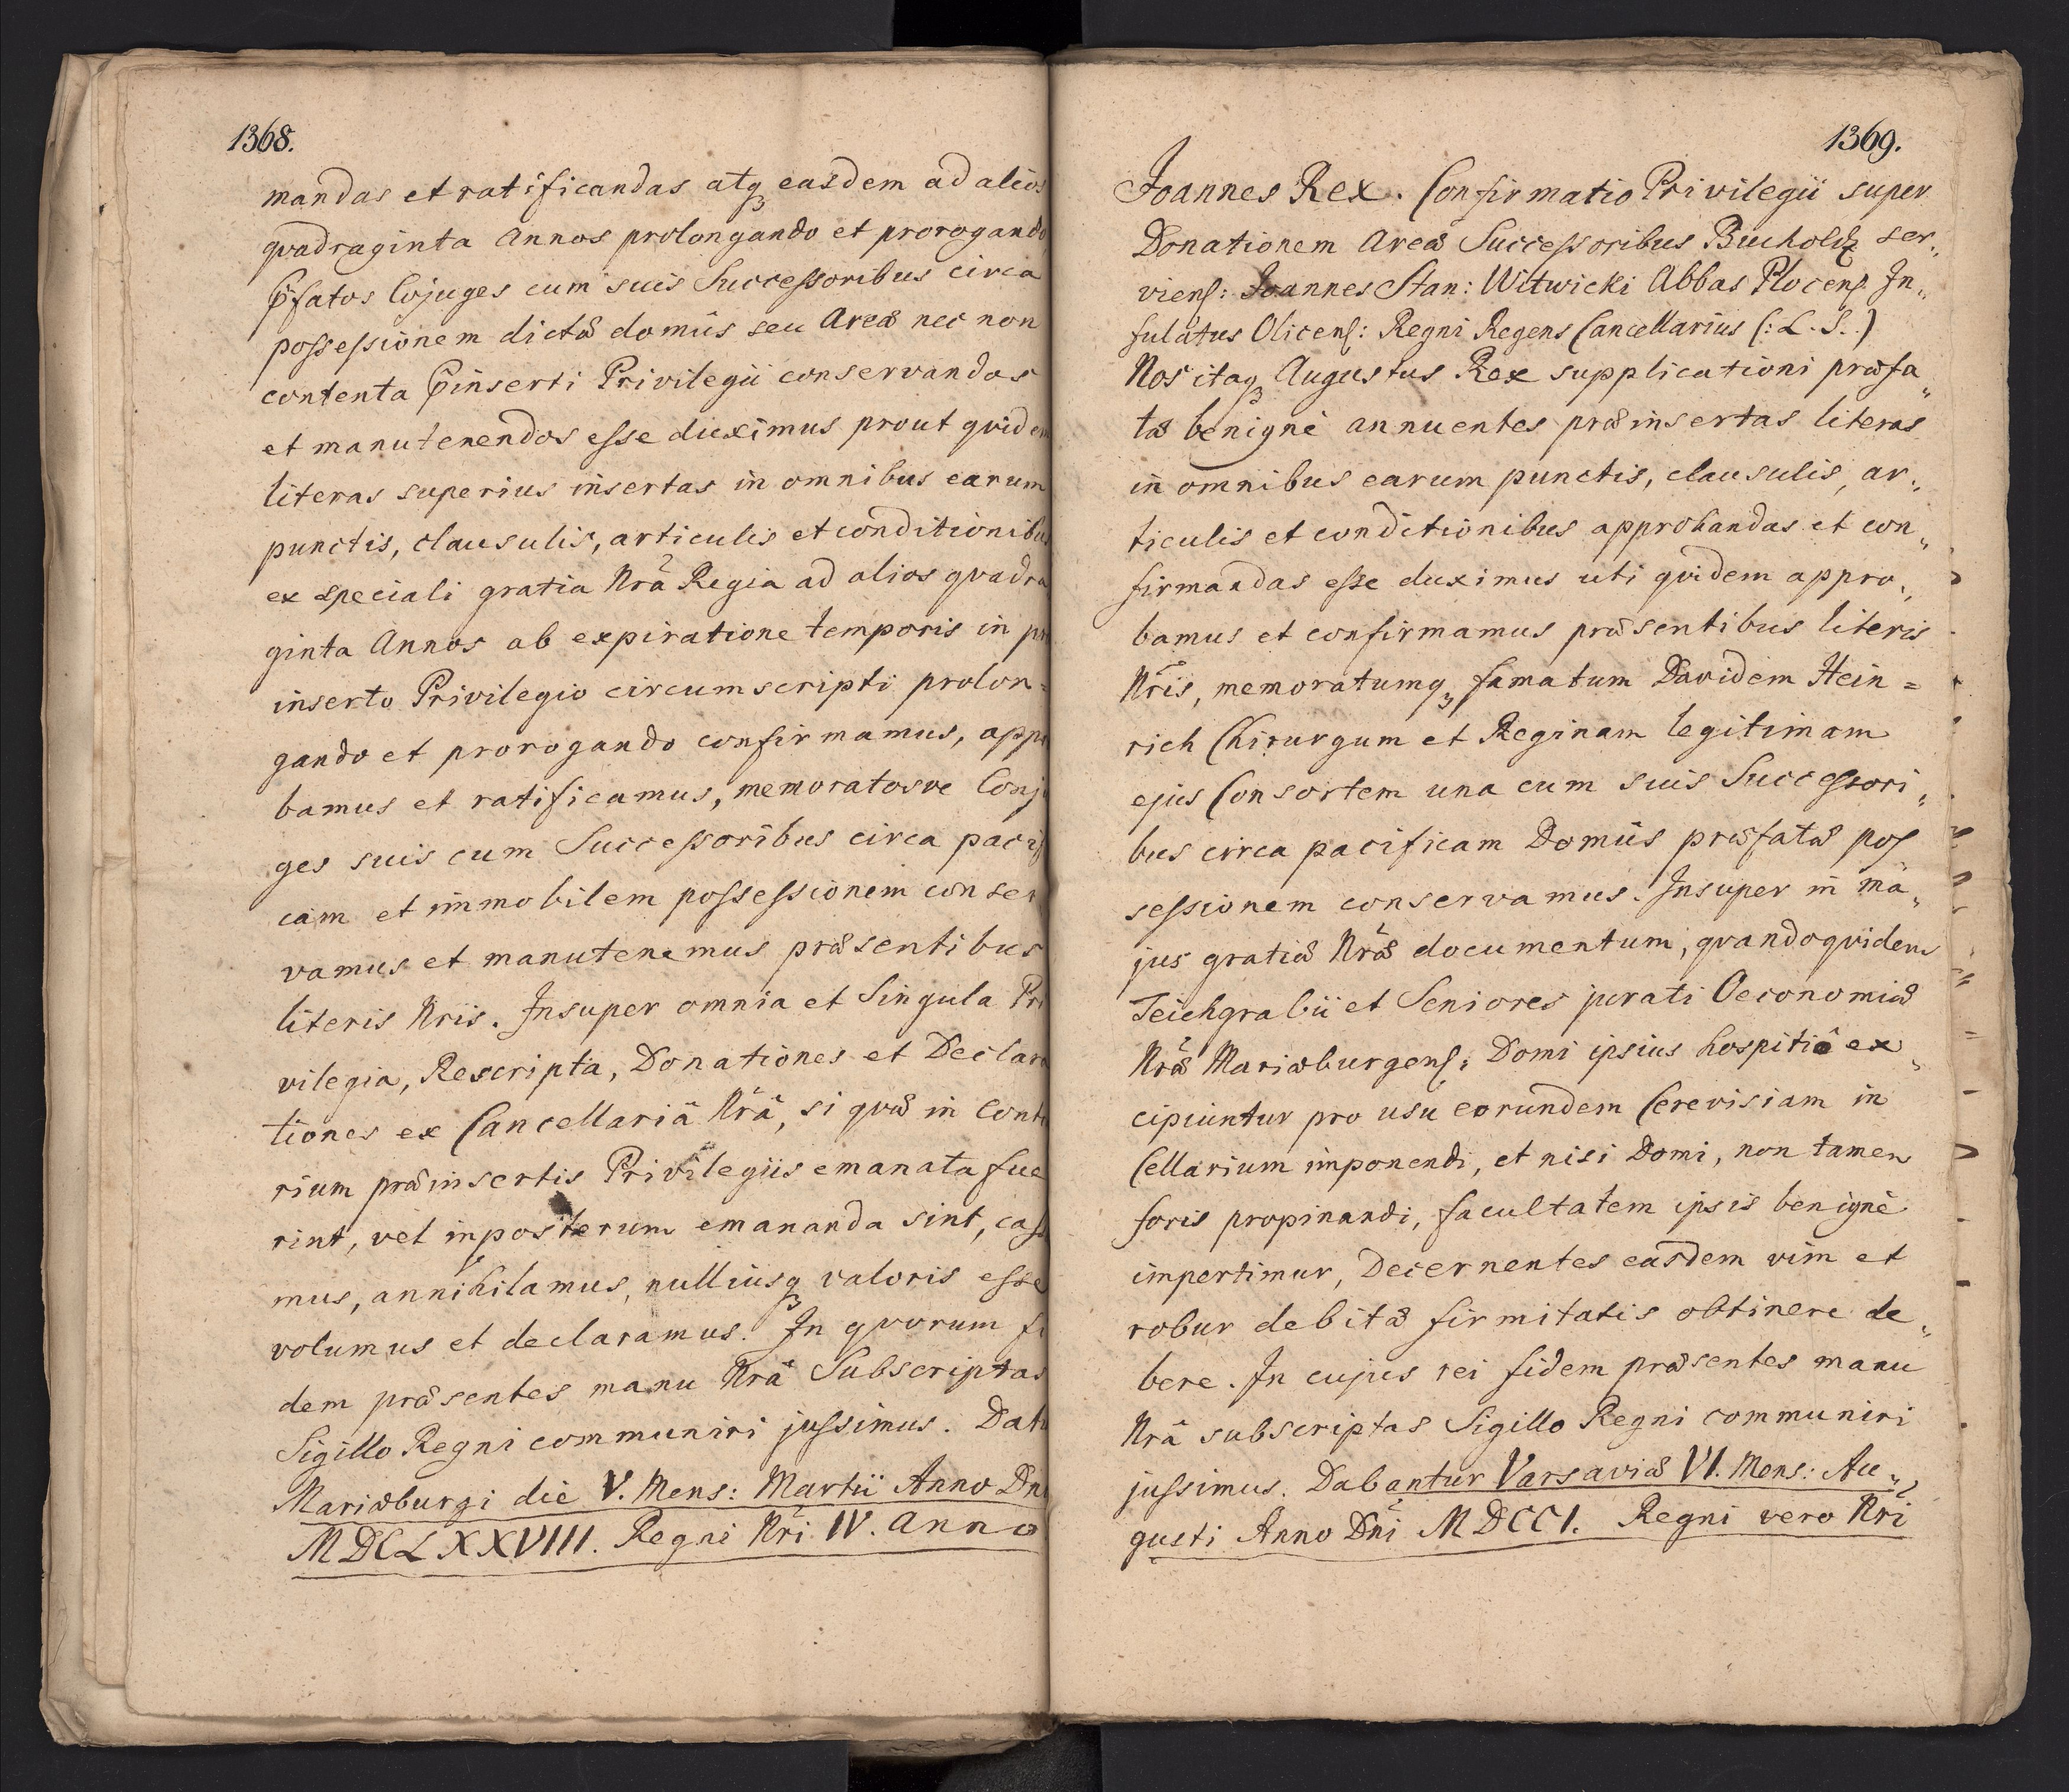 1368.
mandas et ratificandas atq̃ easdem ad alios
qvadraginta Annos prolongando et prorogando
p̃fatos Cojuges cum suis Successoribus circa
possessionem dictæ domûs seu Areæ nec non
contenta p̃inserti Privilegii conservandos
et manutenendos esse duximus prout qvidem
literas superius insertas in omnibus earum
punctis, clausulis, articulis et conditionibus
ex speciali gratia Nrã Regia ad alios qvadra
ginta Annos ab expiratione temporis in præ
inserto Privilegio circumscripti prolon=
gando et prorogando confirmamus, appro
bamus et ratificamus, memoratosve Conju
ges suis cum Successoribus circa pacifi
cam et immobilem possessionem conser
vamus et manutenemus præsentibus
literis Nris. Insuper omnia et Singula Pri
vilegia, Rescripta, Donationes et Declara
tiones ex Cancellariâ Nrâ, si qvæ in Contra
rium præinsertis Privilegiis emanata fue
rint, vel inposterum emananda sint, cassa
mus, annihilamus, nulliusq̃ valoris esse
volumus et declaramus. In qvorum fi
dem præsentes manu Nrâ Subscriptas
Sigillo Regni communiri jussimus. Datu
Mariæburgi die V. Mens: Martii Anno Dni
MDCLXXVIII. Regni Nri IV. Anno
1369.
Joannes Rex. Confirmatio Privilegii super
Donationem Areæ Successoribus Bucholtz ser„
viens: Joannes Stan: Witwicki Abbas Plocens. In„
fulatus Olicens: Regni Regens Cancellarius (: L. S. :)
Nos itaq̃ Augustus Rex supplicationi præfa„
tæ benignè annuentes præinsertas literas
in omnibus earum punctis, clausulis, ar„
ticulis et conditionibus approbandas et con„
firmandas esse duximus uti qvidem appro„
bamus et confirmamus præsentibus literis
Nr̃is, memoratumq̃ famatum Davidem Hein=
rich Chirurgum et Reginam legitimam
ejus Consortem una cum suis Successori„
bus circa pacificam Domûs præfatæ pos
sessionem conservamus. Insuper in ma„
jus gratiæ Nræ documentum, qvandoqvidem
Teichgrabii et Seniores jurati Oeconomiæ
Nræ Mariæburgens: Domi ipsius hospitiô ex„
cipiuntur pro usu eorundem Cerevisiam in
Cellarium imponendi, et nisi Domi, non tamen
foris propinandi, facultatem ipsis benignè
impertimur, Decernentes easdem vim et
robur debitæ firmitatis obtinere de„
bere. In cujus rei fidem præsentes manu
Nrâ subscriptas Sigillo Regni communiri
jussimus. Dabantur Varsaviæ VI. Mens: Au„
gusti Anno Dni MDCCI. Regni vero Nri